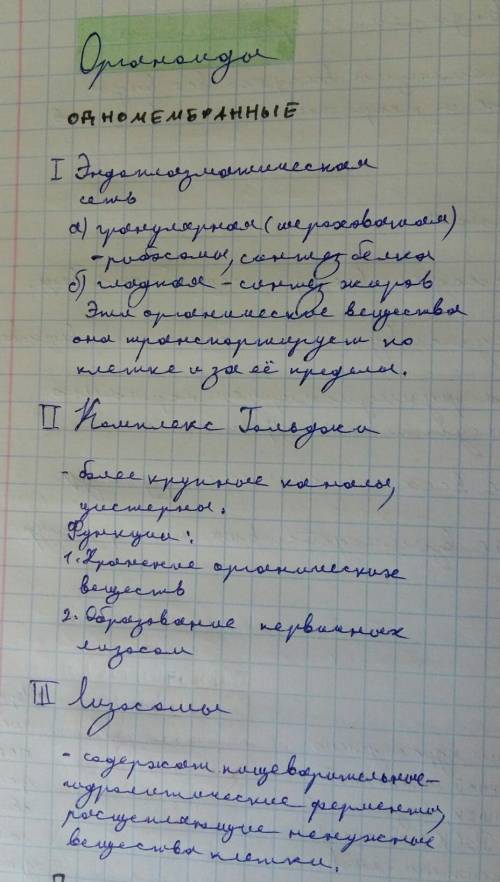 Органоиды
ОДНОМЕМБРАННЫЕ
I Эндоплазматическая
сеть
а) гранулярная (шероховатая)
- рибосомы, синтез белка
б) гладкая - синтез жиров
Эти органические вещества
она транспортирует по
клетке и за её пределы.
II Комплекс Гольджи
- более крупные каналы,
цистерны.
Функции:
1. Хранение органических
веществ
2. Образование первичных
лизосом
III Лизосомы
- содержат пищеварительные-
гидролитические ферменты,
расщепляющие ненужные
вещества клетки.